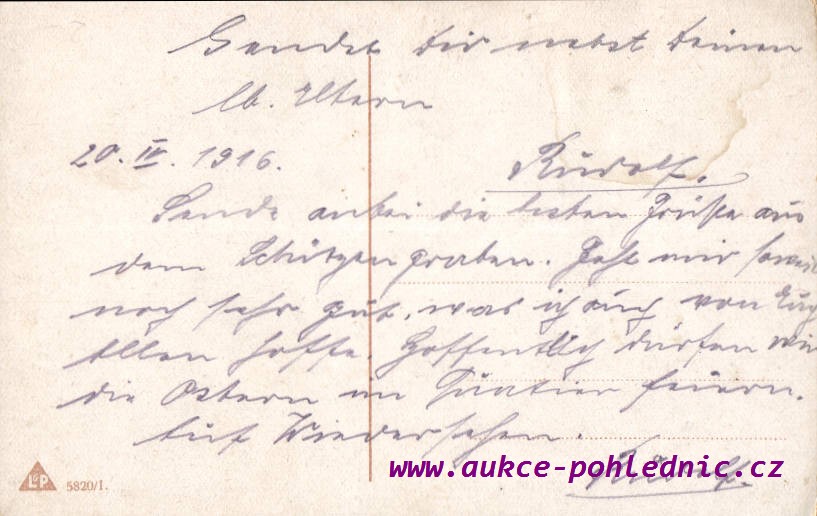 Sendet dir nebst deinen
lb. Eltern
20. IV. 1916.
Rudolf.
Sende anbei die besten Grüße aus
dem Schützengraben. Geht mir soweit
noch sehr gut, was ich auch von Euch
Allen hoffe. Hoffentlich dürfen wir
die Ostern im Quartier feiern.
Auf Wiedersehen.
Rudolf.
www.aukce-pohlednic.cz
L&P 5820/I.